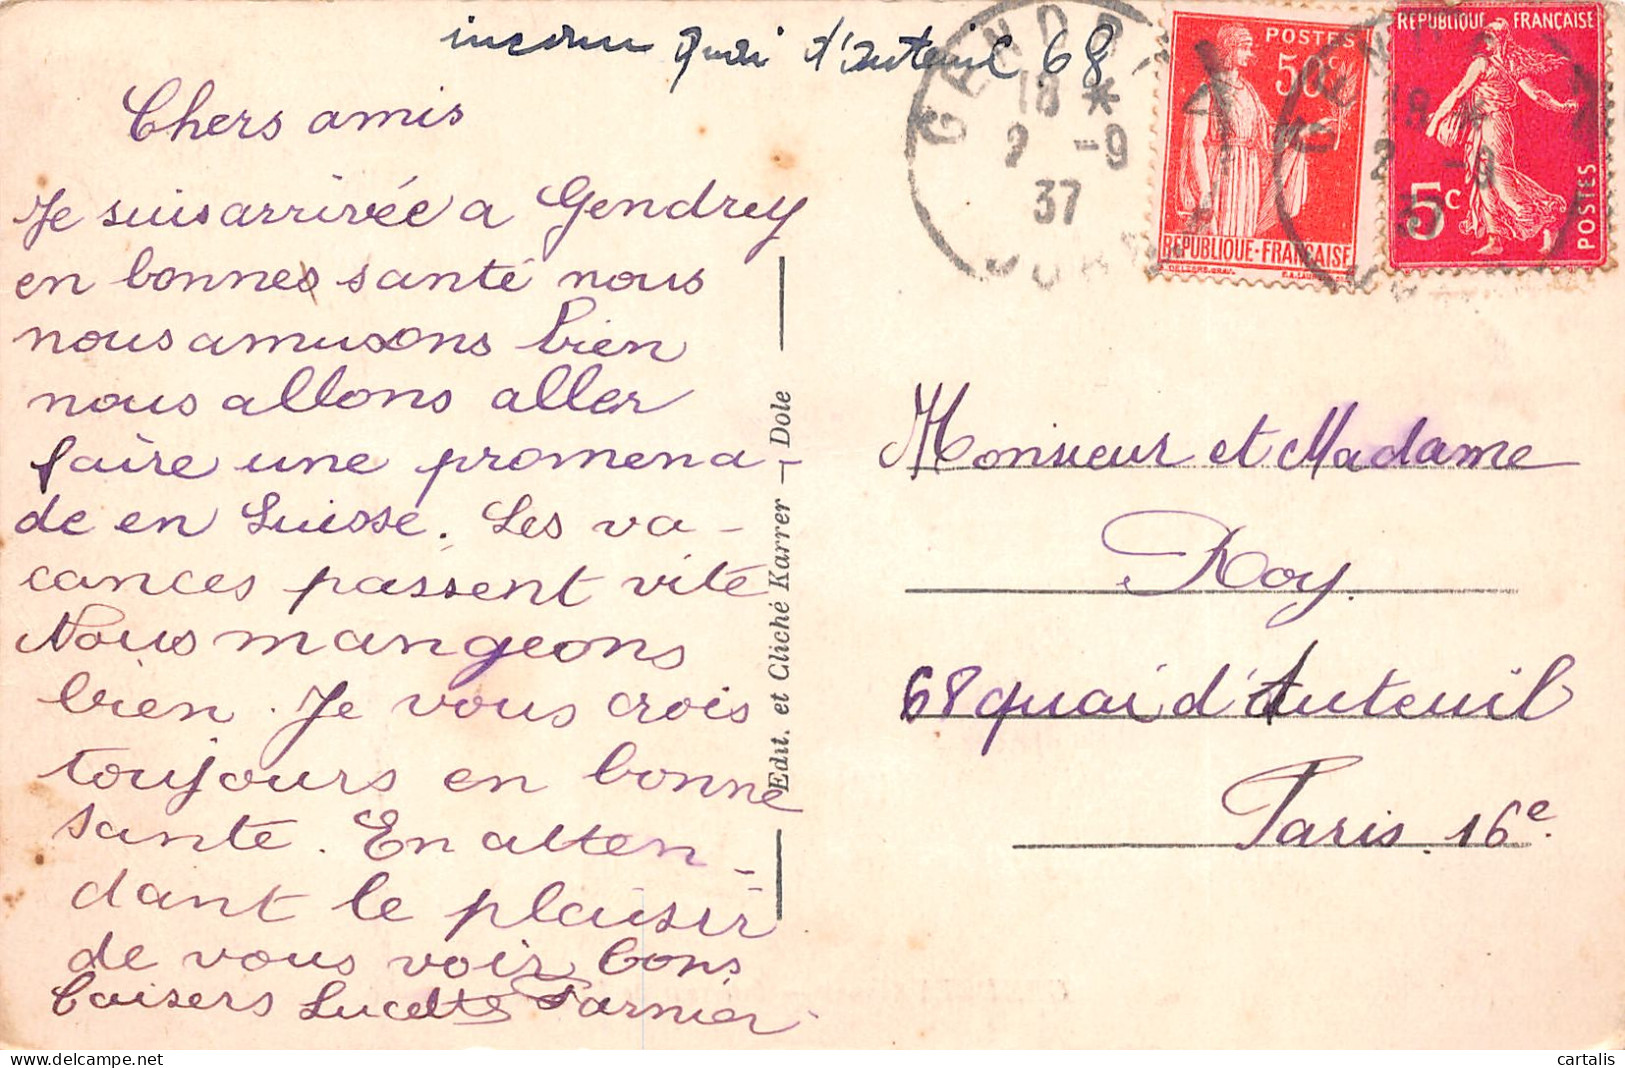 inconnu quai d'auteuil 68
Chers amis
Je suis arrivée a Gendrey
en bonnes santé nous
nous amusons bien
nous allons aller
faire une promena-
de en Suisse. Les va-
cances passent vite
Nous mangeons
bien. Je vous crois
toujours en bonne
santé. En atten-
dant le plaisir
de vous voir bons
baisers Lucette Farnier
Edit. et Cliché Karrer — Dole
GENDREY
18 *
2 -9
37
JURA
POSTES
50c
REPUBLIQUE-FRANÇAISE
REPUBLIQUE FRANÇAISE
18 *
2 -9
37
5c
POSTES
Monsieur et Madame
Roy.
68 quai d'Auteuil
Paris. 16e.
cartalis